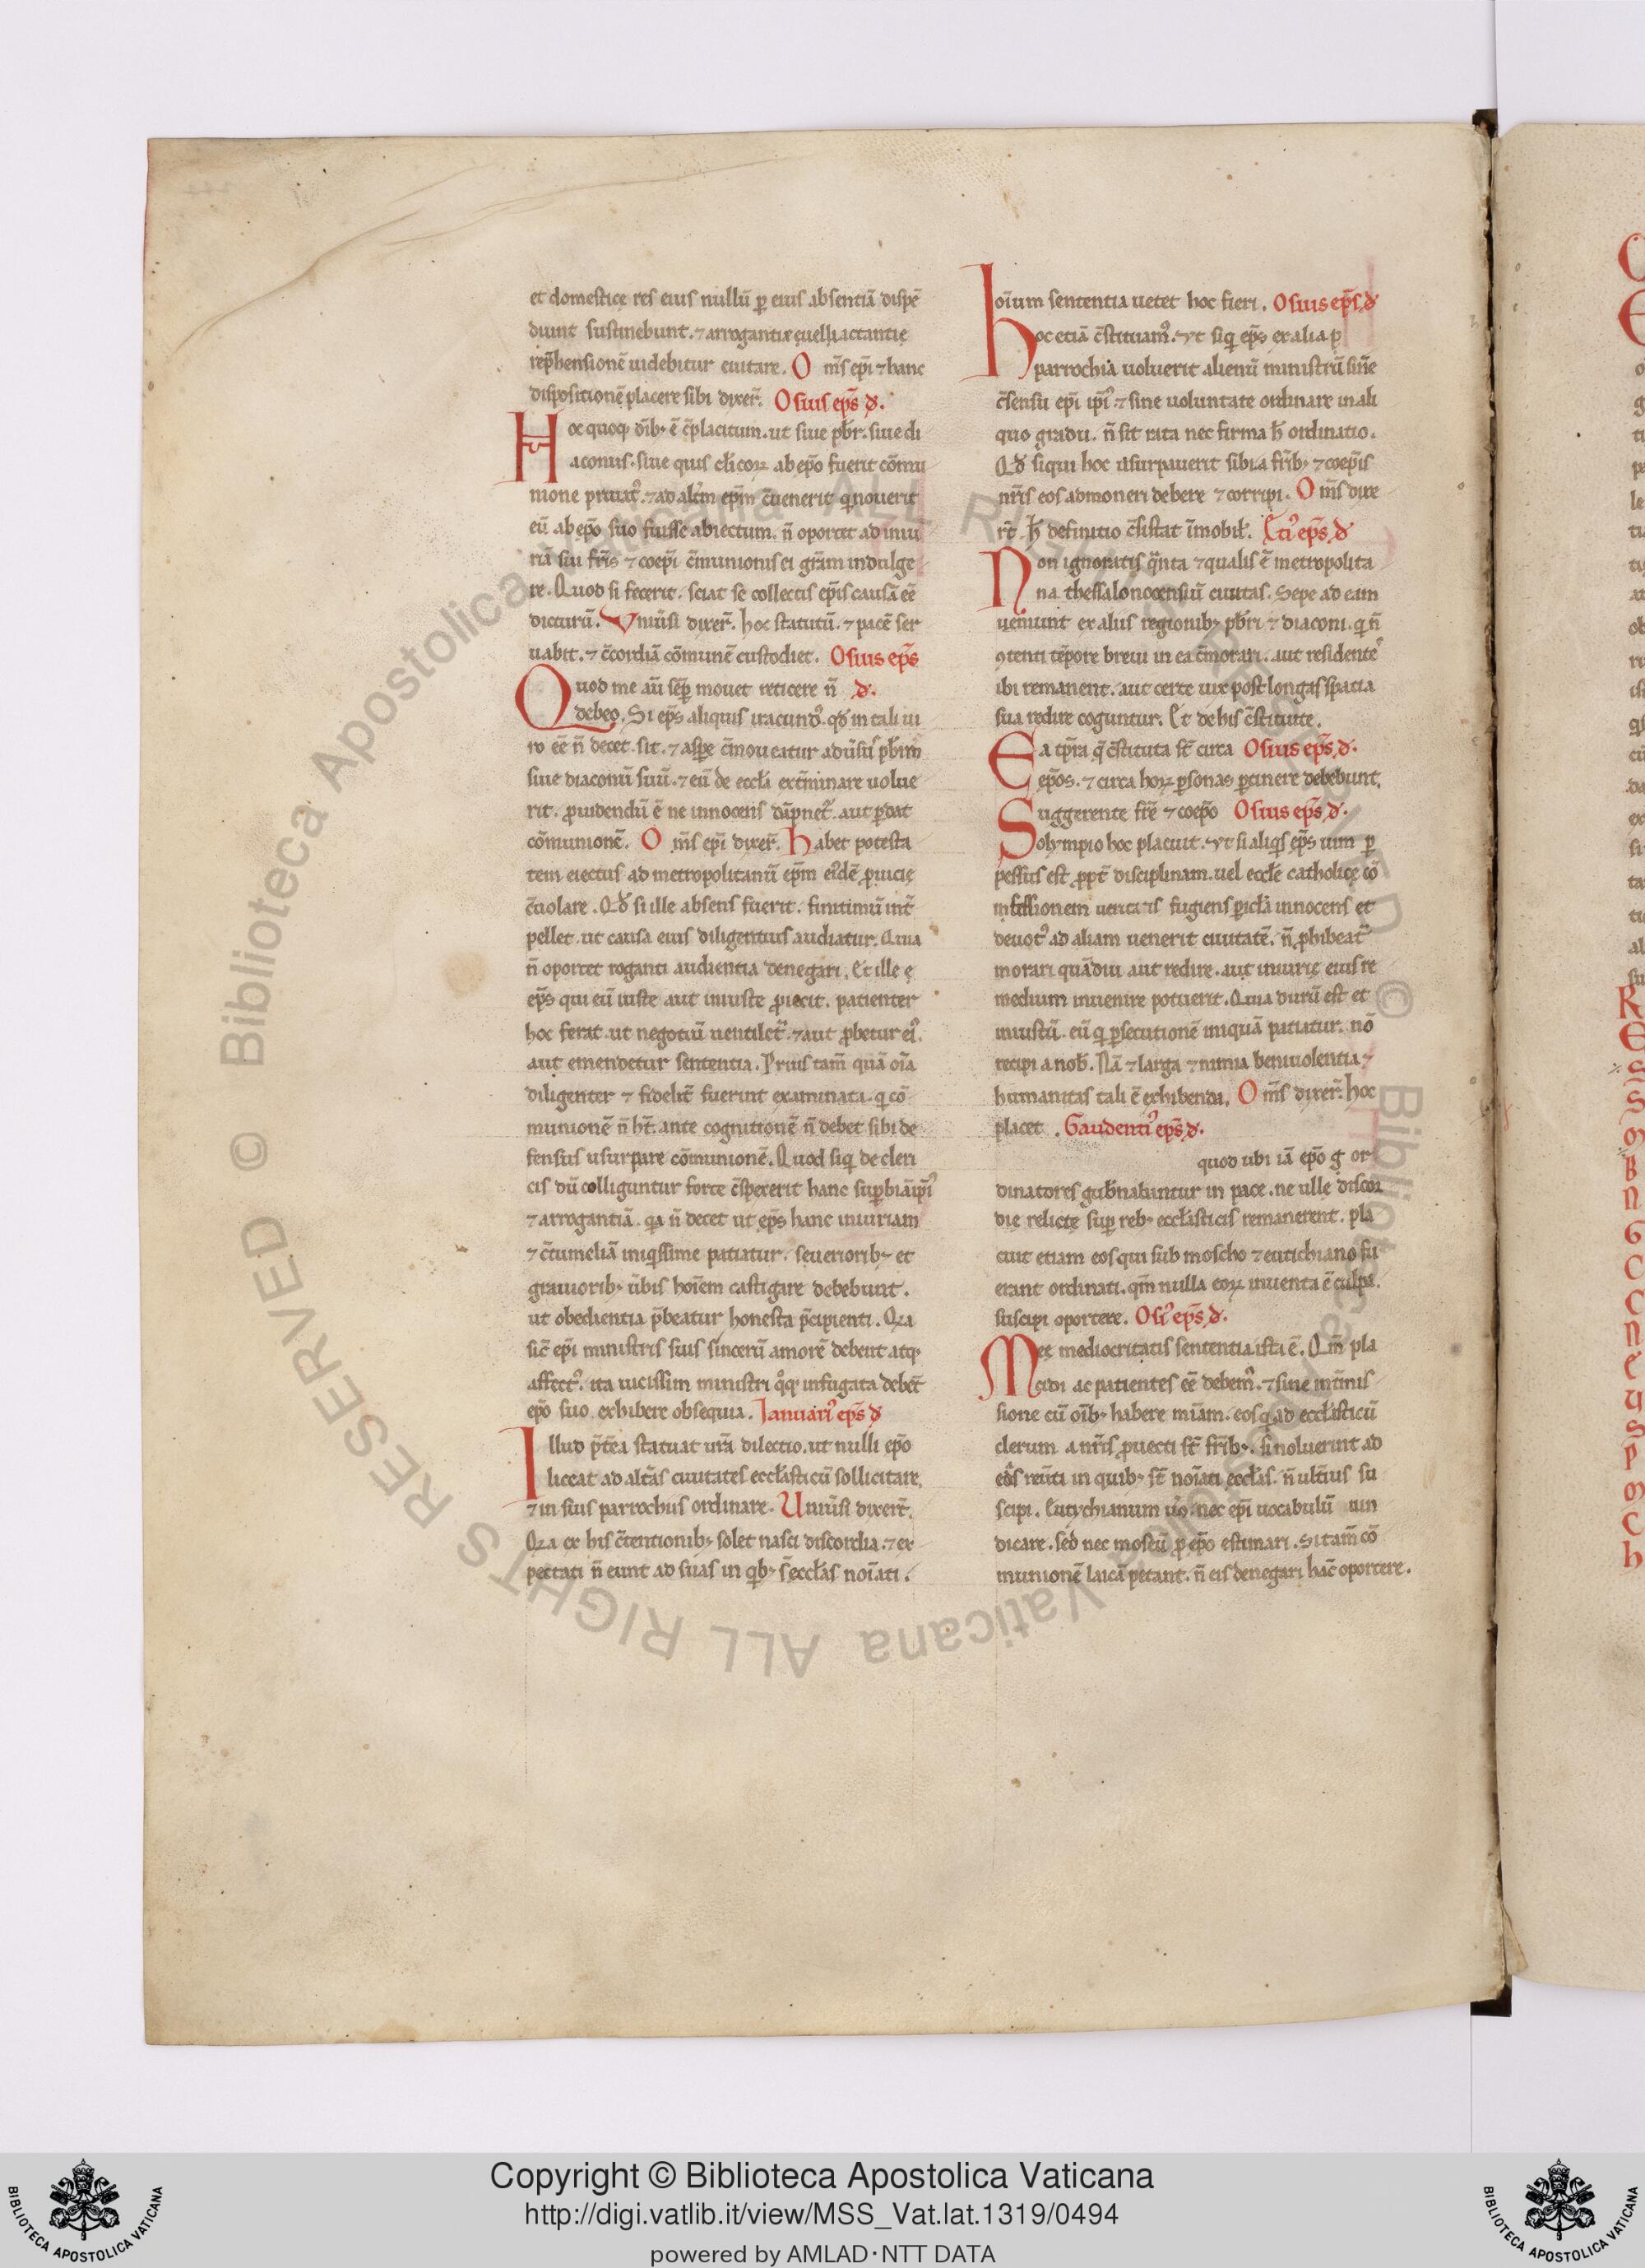 et domestice res eius nullū ꝑ eius absentiā dispē
diunt sustinebunt. ⁊ arrogantię ęuelli actantię
rep̄hensionē uidebitur euitare. O ms̄ ep̄i ⁊ hanc
dispositionē placere sibi dixer̄. Osius ep̄s d̄.
Hoc quoq; oīb; ē c̄placitum. ut siue pb̄r. siue di
aconus. siue quis cl̄icoꝝ ab ep̄o fuerit cōmu
nione priuat᷒. ⁊ ad alt̄m ep̄m c̄uenerit qi nouerit
eū ab ep̄o suo fuisse abiectum. n̄ oportet ad iniu
riā sui fr̄is ⁊ coep̄i c̄munionis ei gr̄am indulge
re. Quod si fecerit. sciat se collectis ep̄is causā eē
dicturū. Vniūsi dixer̄. hoc statutū. ⁊ pacē ser
uabit. ⁊ c̄cordiā cōmunē custodiet. Osius ep̄s
Quod me aū sēp mouet reticere n̄ d̄.
debeo. Si ep̄s aliquis iracund᷒. qd̄ in tali ui
ro eē n̄ decet. sit. ⁊ aspe c̄moueatur aduīsū pb̄rm
siue diaconū suū. ⁊ eū de eccl̄a ext̄minare uolue
rit. ꝓuidendū ē ne innocens dāpnet᷑. aut ꝑdat
cōmunionē. O ms̄ ep̄i dixer̄. Habet potesta
tem eiectus ad metropolitanū ep̄m ei᷒dē ꝓuīcię
c̄uolare. Qd̄ si ille absens fuerit. finitimū int̄
pellet. ut causa eius diligentius audiatur. Quia
n̄ oportet roganti audientia denegari. Et ille ę
ep̄s qui eū iuste aut iniuste ꝓiecit. patienter
hoc ferat. ut negotiū uentilet᷑. ⁊ aut ꝓbetur ei᷒.
aut emendetur sententia. Prius tam̄ quā oīa
diligenter ⁊ fidelit̄ fuerint examinata. qi cō
munionē n̄ ht̄. ante cognitionē n̄ debet sibi de
fensus usurpare cōmunionē. Quod siqi de cleri
cis dū colliguntur forte c̄spexerit hanc suꝑbiā ip̄i᷒
⁊ arrogantiā. qa n̄ decet ut ep̄s hanc iniuriam
⁊ c̄tumeliā iniqissime patiatur. seuerioribꝫ et
grauiorib; ūbis hoīem castigare debebunt.
ut obedientia p̄beatur honesta p̄cipienti. Qia
sic̄ ep̄i ministris suis sincerū amorē debent atqꝫ
affect᷒. ita uicissim ministri qoqꝫ infugata debet
ep̄o suo exhibere obsequia. Ianuari᷒ ep̄s d̄
Illud p̄tea statuat ur̄a dilectio. ut nulli ep̄o
liceat ad alt̄as ciuitates eccl̄asticū sollicitare
⁊ in suis parrochiis ordinare. Uniūsi dixer̄t.
Qia ex his c̄tentionibꝫ solet nasci discordia. ⁊ ex
pectati n̄ eunt ad suas in qbꝫ s̄ eccl̄as noīati.
hoīum sententia uetet hoc fieri. Osius ep̄s d̄
hoc etiā c̄stituam᷒. ut siqi ep̄s ex alia ꝑ
parrochia uoluerit alienū ministrū sine
c̄sensu ep̄i ip̄i᷒ ⁊ sine uoluntate ordinare in ali
quo gradu. n̄ sit rata nec firma h̄ ordinatio.
Qd̄ siqui hoc usurpauerit sibi a fr̄ibꝫ ⁊ coep̄is
nr̄is eos admoneri debere ⁊ corripi. O ms̄ dixe
rt̄. h̄ definitio c̄sistat īmobil̄. Eti᷒ ep̄s d̄
Non ignoratis qnta ⁊ qualis ē metropolita
na thessalonocensiū ciuitas. Sepe ad eam
ueniunt ex aliis regionibꝫ pb̄ri ⁊ diaconi. qi n̄
ꝯtenti tēpore breui in ea c̄morari. aut residentes
ibi remanent. aut certe uix post longa spatia
sua redire coguntur. Et de his c̄stituite.
Ea tp̄ra q̄ c̄stituta st̄ circa Osius ep̄s d̄.
ep̄os. ⁊ circa hoꝝ ꝑsonas ꝑtinere debebunt.
Suggerente fr̄e ⁊ coep̄o Osius ep̄s d̄.
olympio hoc placuit. ut si aliqis ep̄s uim ꝑ
pessus est ꝓpt̄ disciplinam. uel eccl̄e catholicę cō
fessionem ueritatis fugiens ꝑicl̄a innocens et
deuot᷒ ad aliam uenerit ciuitatē. n̄ ꝓhibeat᷑
morari quādiu aut redire. aut iniurię eius re
medium inuenire potuerit. Quia durū est et
iniustū. eū qi ꝑsecutionē iniquā patiatur. nō
recipi a nob̄. Nā ⁊ larga ⁊ nimia beniuolentia ⁊
humanitas tali ē exhibenda. O ms̄ dixer̄. hoc
placet. Gaudenti᷒ ep̄s d̄.
quod ubi iā ep̄o g or
dinatores gub̄nabuntur in pace. ne ulle discor
die relictę suꝑ rebꝫ eccl̄asticis remanerent. pla
cuit etiam eos qui sub moscho ⁊ eutichiano fu
erant ordinati. qm̄ nulla eoꝝ inuenta ē culpa.
suscipi oportere. Osi᷒ ep̄s d̄.
Meę mediocritatis sententia ista ē. Qm̄ pla
cidi ac patientes eē debem᷒. ⁊ sine int̄mis
sione cū oībꝫ habere miām. eos qi ad eccl̄asticū
clerum a nr̄is ꝓuecti st̄ fr̄ibꝫ. si noluerint ad
eas reūti in quibꝫ st̄ noīati eccl̄as. n̄ ult̄ius su
scipi. Eutychianum uo nec ep̄i uocabulū uin
dicare. sed nec moscū ꝓ ep̄o estimari. Si tam̄ cō
munionē laicā petant. n̄ eis denegari hāc oportere.
© Biblioteca Apostolica Vaticana ALL RIGHTS RESERVED © Biblioteca Apostolica Vaticana ALL RIGHTS RESERVED
Copyright © Biblioteca Apostolica Vaticana
http://digi.vatlib.it/view/MSS_Vat.lat.1319/0494
powered by AMLAD·NTT DATA
BIBLIOTECA APOSTOLICA VATICANA
BIBLIOTECA APOSTOLICA VATICANA